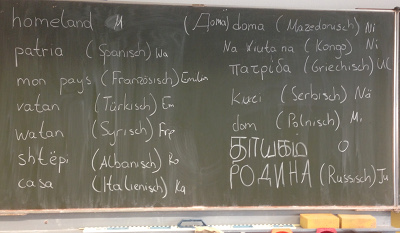 homeland M
patria (Spanisch) Wa
mon pays (Französisch) Emilin
vatan (Türkisch) Em
watan (Syrisch) Frp
shtëpi (Albanisch) Ko
casa (Italienisch) Ka
(Дома) doma (Mazedonisch) Ni
Na Kiutana (Kongo) Ni
πατρίδα (Griechisch)
Kuci (Serbisch) Nä
dom (Polnisch) Mi
தாயகம் O
РОДИНА (Russisch) Ju